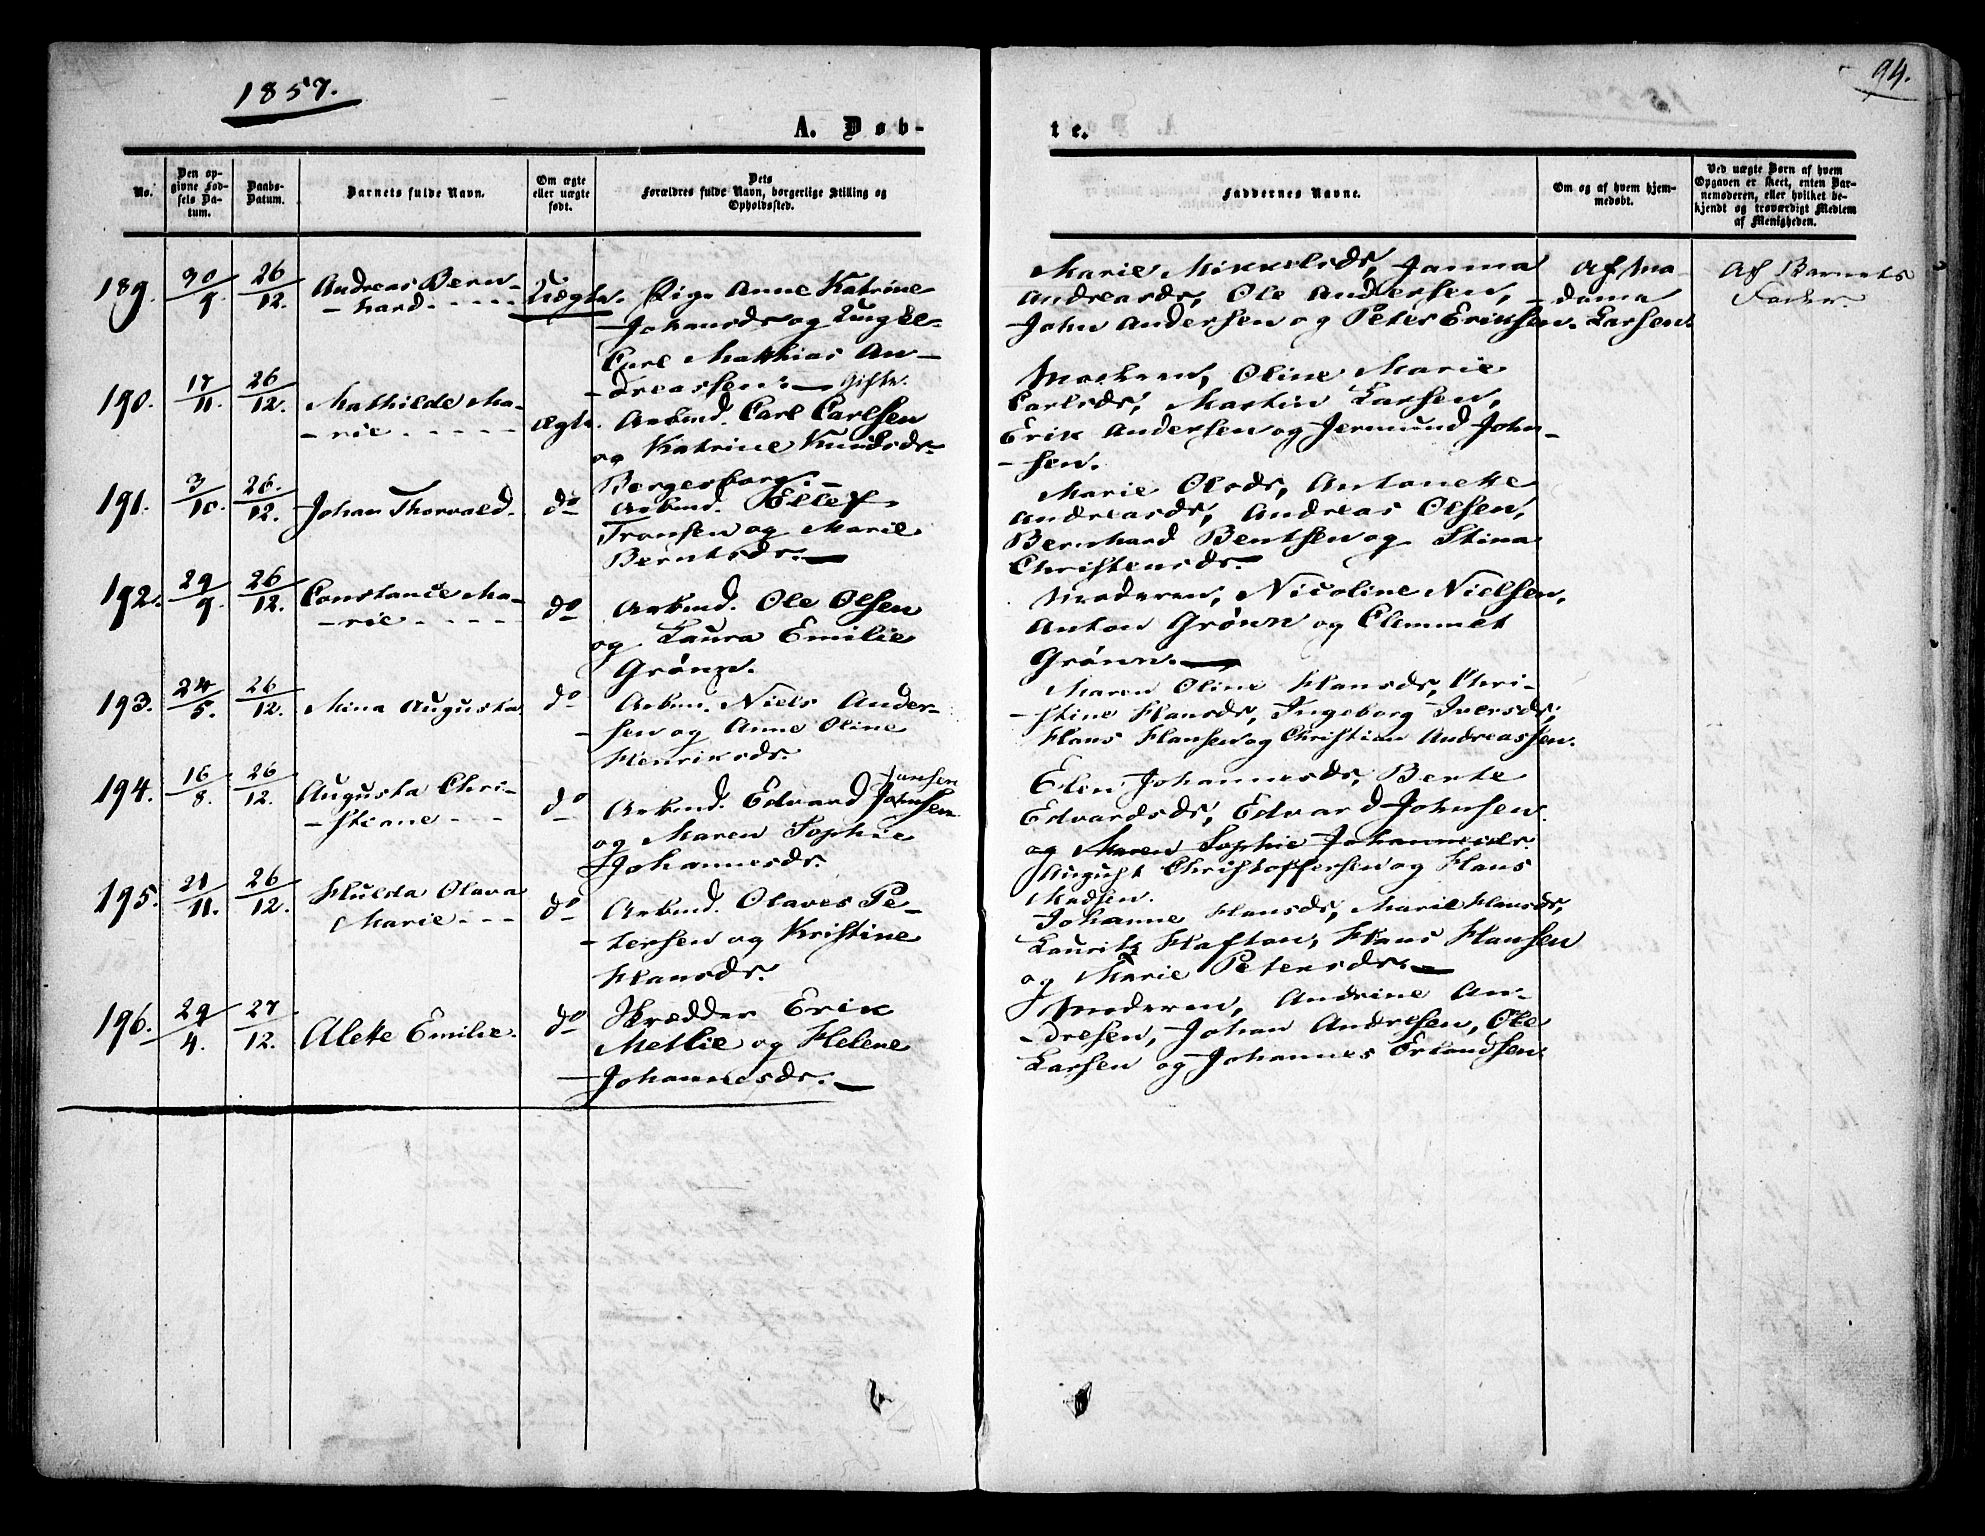 1857.
94.
A. Døb-
te.
No.
Den op-
givne Fød-
sels Da-
tum.
Daabs-
Datum.
Barnets fulde Navn.
Om ægte
eller uægte
født.
Dets
Forældres fulde Navn, borgerlige Stilling og
Opholdssted.
Faddernes Navne.
Om og af hvem hjem-
medøbt.
Ved uægte Børn af hvem
Opgaven er skeet, enten Bar-
nemoderen, eller hvilket be-
kjendt og troværdigt Medlem
af Menigheden.
189. 30/9. 26/12. Andreas Bern-
-hard.
Uægte.
Pige Anne Katrine
Johansdr og Ungkl.
Carl Mathias An-
-dreassen.
Marie Mikkelsdr, Janna
Andreasdr, Ole Andersen,
John Andersen og Peter Eriksen.
Af Ma-
-dama
Larsen.
Af Barnets
Fader.
190. 17/11. 26/12. Mathilde Ma-
-rie
ægte.
Gifte.
Arbmd. Carl Carlsen
og Katrine Knudsdr.
Bergersborg.
Moderen, Oline Marie
Carlsdr, Martin Larsen,
Erik Andersen og Jermund John-
-sen.
191. 3/10. 26./12. Johan Thorvald.
do
Arbmd. Ellef
Tronsen og Marie
Berntsdr.
Marie Olsdr, Antonette
Andreasdr, Andreas Olsen,
Bernhard Bentsen og Stina
Christensdr.
192. 29/9. 26/12. Constance Ma-
-rie
do
Arbmd. Ole Olsen
og Laura Emilie
Grønn.
Moderen, Nicoline Nielsen,
Anton Grønn og Clemmet
Grønn.
193. 24/5. 26/12. Mina Augusta
do
Arbm. Niels Ander-
-sen og Anne Oline
Henriksdr.
Maren Oline Hansdr, Chri-
-stine Hansdr, Ingeborg Iversdr,
Hans Hansen og Christian Andreassen.
194. 16/8. 26/12. Augusta Chri-
-stiane
do
Jansen
Arbmd. Edvard Johnsen
og Maren Sophie
Johannesdr.
Elen Johannesdr, Berte
Edvardsdr, Edvard Johnsen
og Maren Sophie Johannesdr.
August Christoffersen og Hans
Madsen.
195. 21/11. 26/12. Hulda Olava
Marie
do
Arbmd. Olaves Pe-
-tersen og Kristine
Hansdr.
Johanne Hansdr, Marie Hansdr,
Lauritz Hafton, Hans Hansen
og Marie Petersdr.
196. 29/4. 27/12. Alette Emilie.
do
Skrædder Erik
Metlie og Helene
Johannesdr.
Moderen, Andrine An-
-dresen, Johan Andresen, Ole
Larsen og Johannes Erlandsen